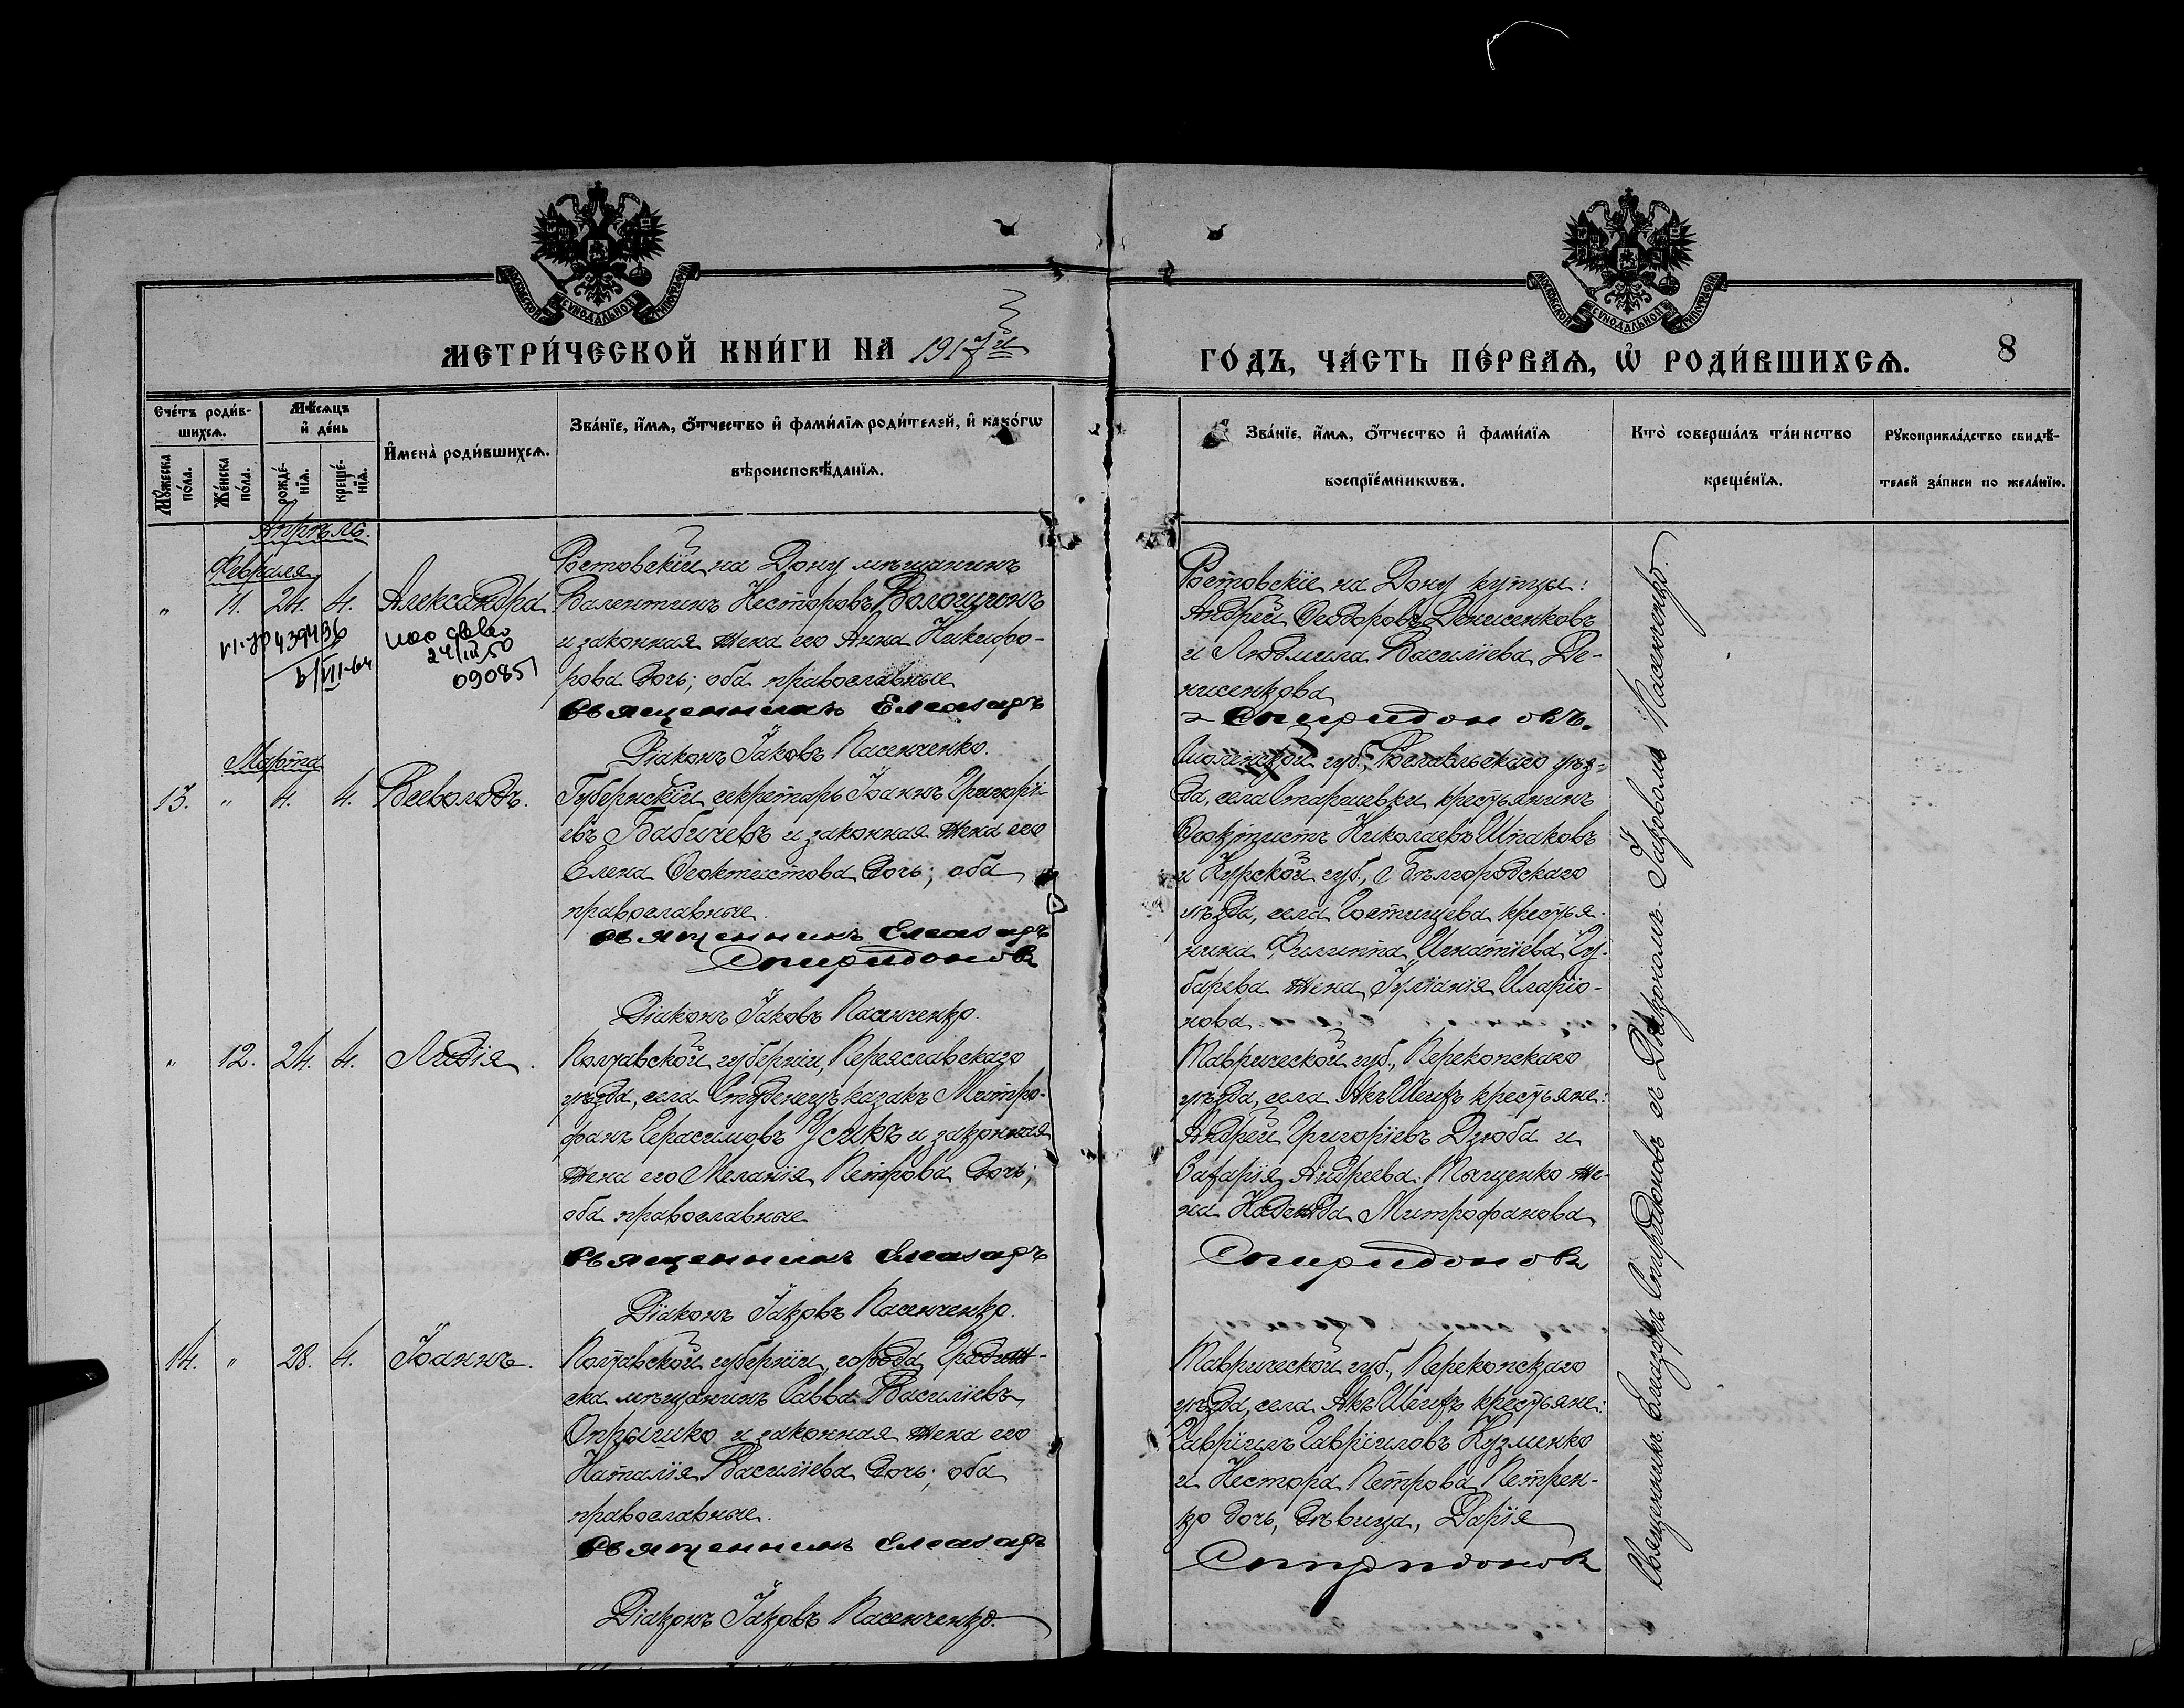 МОСКОВСКОЙ СѴНОДАЛЬНОЙ ТИПОГРАФІИ
МОСКОВСКОЙ СѴНОДАЛЬНОЙ ТИПОГРАФІИ
МЕТРИ́ЧЕСКОЙ КНИ́ГИ НА 1917й
ГО́ДЪ, ЧА́СТЬ ПЕ́РВАѦ, Ѡ҆ РОДИ́ВШИХСѦ.
8
Сче́тъ роди́в-
шихсѧ.
Мꙋ́жеска по́ла.
Же́нска по́ла.
Мѣ́сѧцъ и҆ де́нь
рожде́-
нїѧ.
креще́-
нїѧ.
И҆мена̀ роди́вшихсѧ.
Зва́нїе, и҆́мѧ, ѻ҆́тчество и҆ фами́лїѧ роди́телей, и҆ како́гѡ
вѣроисповѣ́данїѧ.
Зва́нїе, и҆́мѧ, ѻ҆́тчество и҆ фами́лїѧ
воспрїе́мникѡвъ.
Кто̀ соверша́лъ та́инство
креще́нїѧ.
Рꙋкоприкла́дство свидѣ́-
телей за́писи по жела́нїю.
Апрѣль.
Февраля
„ 11. 24. 4. Александра
439436
24/III 50
090851
Ростовскій на Дону мѣщанинъ
Валентинъ Несторовъ Волошинъ
и законная жена его Анна Никифо-
рова дочь; оба православные
Священникъ Елеазаръ
Діаконъ Іаковъ Пасенченко.
Ростовскіе на Дону купцы:
Андрей Ѳеодоровъ Денисенковъ
и Людмила Василіева Де-
нисенкова
Спиридоновъ.
Марта
13. „ 4. 4. Всеволодъ.
Губернскій секретарь Іоаннъ Григорі-
евъ Бабичевъ и законная жена его
Елена Ѳеоктистова дочь; оба
православные.
Священникъ Елеазаръ
Спиридоновъ
Діаконъ Іаковъ Пасенченко.
Смоленской губ., Рославльскаго уѣз-
да, села крестьянинъ
Ѳеоктистъ Николаевъ Шпаковъ
и Курской губ., Бѣлгородскаго
уѣзда, села Гостищева крестья-
нина Филиппа Игнатіева Гу-
барева жена Іуліанія Иларіо-
нова
„ 12. 24. 4. Лидія.
Полтавской губерніи, Переяславскаго
уѣзда, села Студенецъ казакъ Митро-
фанъ Герасимовъ Усикъ и законная
жена его Меланія Петрова дочь;
оба православные
Священникъ Елеазаръ
Діаконъ Іаковъ Пасенченко.
Таврической губ., Перекопскаго
уѣзда, села Акъ Шеихъ крестьяне:
Андрей Григоріевъ Дзюба и
Захарія Андреева Пащенко же-
на Надежда Митрофанова
Спиридоновъ
14. „ 28. 4. Іоаннъ.
Полтавской губерніи, города Градиж-
ска мѣщанинъ Савва Василіевъ
Опрышко и законная жена его
Наталія Василіева дочь; оба
православные.
Священникъ Елеазаръ
Діаконъ Іаковъ Пасенченко.
Таврической губ., Перекопскаго
уѣзда, села Акъ Шеихъ крестьяне:
Гавріилъ Гавріиловъ Кузменко
и Нестора Петрова Петрен-
ко дочь, дѣвица, Дарія
Спиридоновъ
Священникъ Елеазаръ Спиридоновъ съ Діакономъ Іаковомъ Пасенченко.